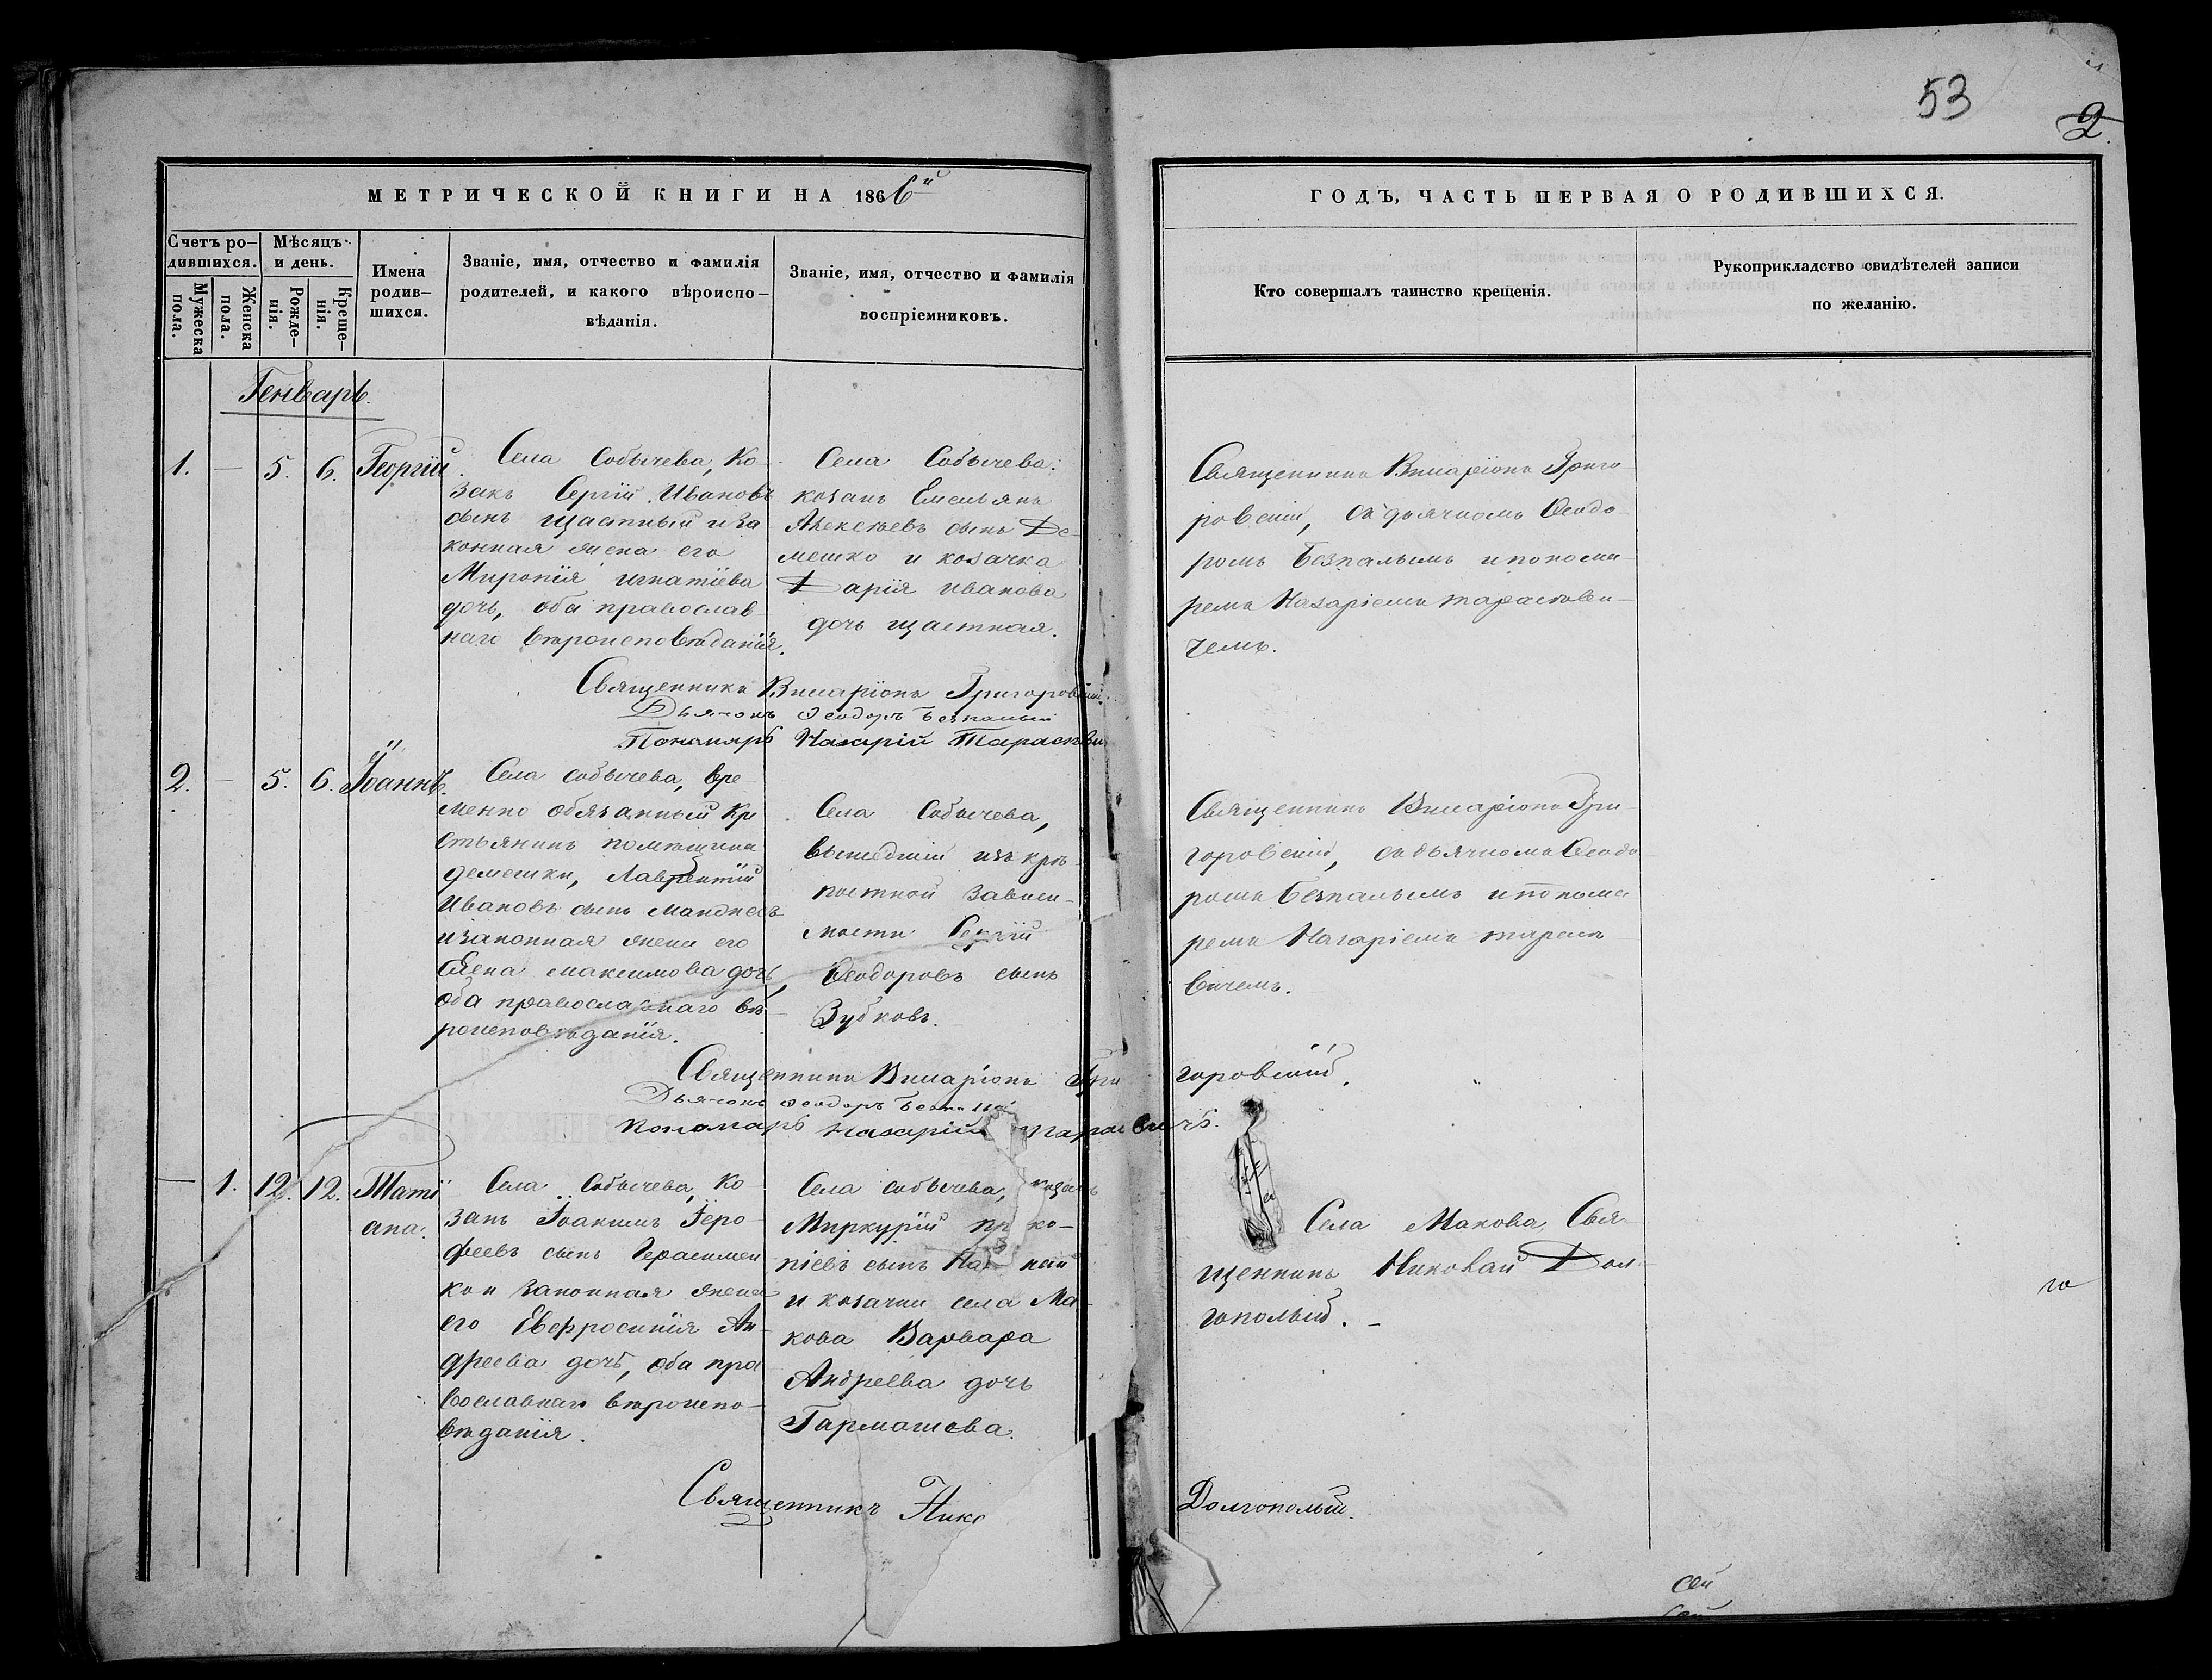 53
2.
МЕТРИЧЕСКОЙ КНИГИ НА 1866й
ГОДЪ, ЧАСТЬ ПЕРВАЯ О РОДИВШИХСЯ.
Счетъ ро-
дившихся.
Мужеска
пола.
Женска
пола.
Мѣсяцъ
и день.
Рожде-
нія.
Креще-
нія.
Имена
родив-
шихся.
Званіе, имя, отчество и фамилія
родителей, и какого вѣроиспо-
вѣданія.
Званіе, имя, отчество и фамилія
воспріемниковъ.
Кто совершалъ таинство крещенія.
Рукоприкладство свидѣтелей записи
по желанію.
Генварь.
1. — 5. 6. Георгій.
Села Собычева, Ко-
закъ Сергій Ивановъ
сынъ Щастный и за
конная жена его
Миропія Игнатіева
дочь, оба православ-
наго вѣроисповѣданія.
Села Собычева.
козакъ Емельянъ
Алексѣевъ сынъ Де-
мешко и козачка
Дарія Иванова
дочь Щастная.
Священникъ Виларіонъ Григо
ровскій, съ дьячкомъ Ѳеодо
ромъ Безпалымъ и понома
ремъ Назаріемъ Тарасеви-
чемъ.
Священникъ Виларіонъ Григоровскій.
Дьячокъ Ѳеодоръ Безпалый
Пономарь Назарій
2. — 5. 6. Іоаннъ.
Села Собычева, вре-
менно обязанный Кре
стьянинъ помѣщика
Демешки, Лаврентій
Ивановъ сынъ
и законная жена его
Елена Максимова дочь,
оба православнаго вѣ-
роисповѣданія.
Села Собычева,
вышедшій изъ крѣ-
постной зависи-
мости Сергій
Ѳеодоровъ сынъ
Зубковъ.
Священникъ Виларіонъ Гри-
горовскій, съ дьячкомъ Ѳеодо
ромъ Безпалымъ и понома
ремъ Назаріемъ Тарасе
вичемъ.
Священникъ Виларіонъ Григоровскій.
Дьячокъ Ѳеодоръ
Пономарь Назарій Тарасевичъ.
— 1. 12. 12. Таті
ана.
Села Собычева, Ко-
закъ Іоакимъ Іеро-
феевъ сынъ Герасимен
ко и законная жена
его Евфросинія Ан-
дреева дочь, оба пра
вославнаго вѣроиспо-
вѣданія.
Села Собычева, козакъ
Меркурій проко-
піевъ сынъ
и козачки села Ма-
кова Варвара
Андреева дочь
Гармашова.
Села Макова, Свя-
щенникъ Николай Дол-
гополый. –
го
Священникъ Нико
Долгополый.
сей